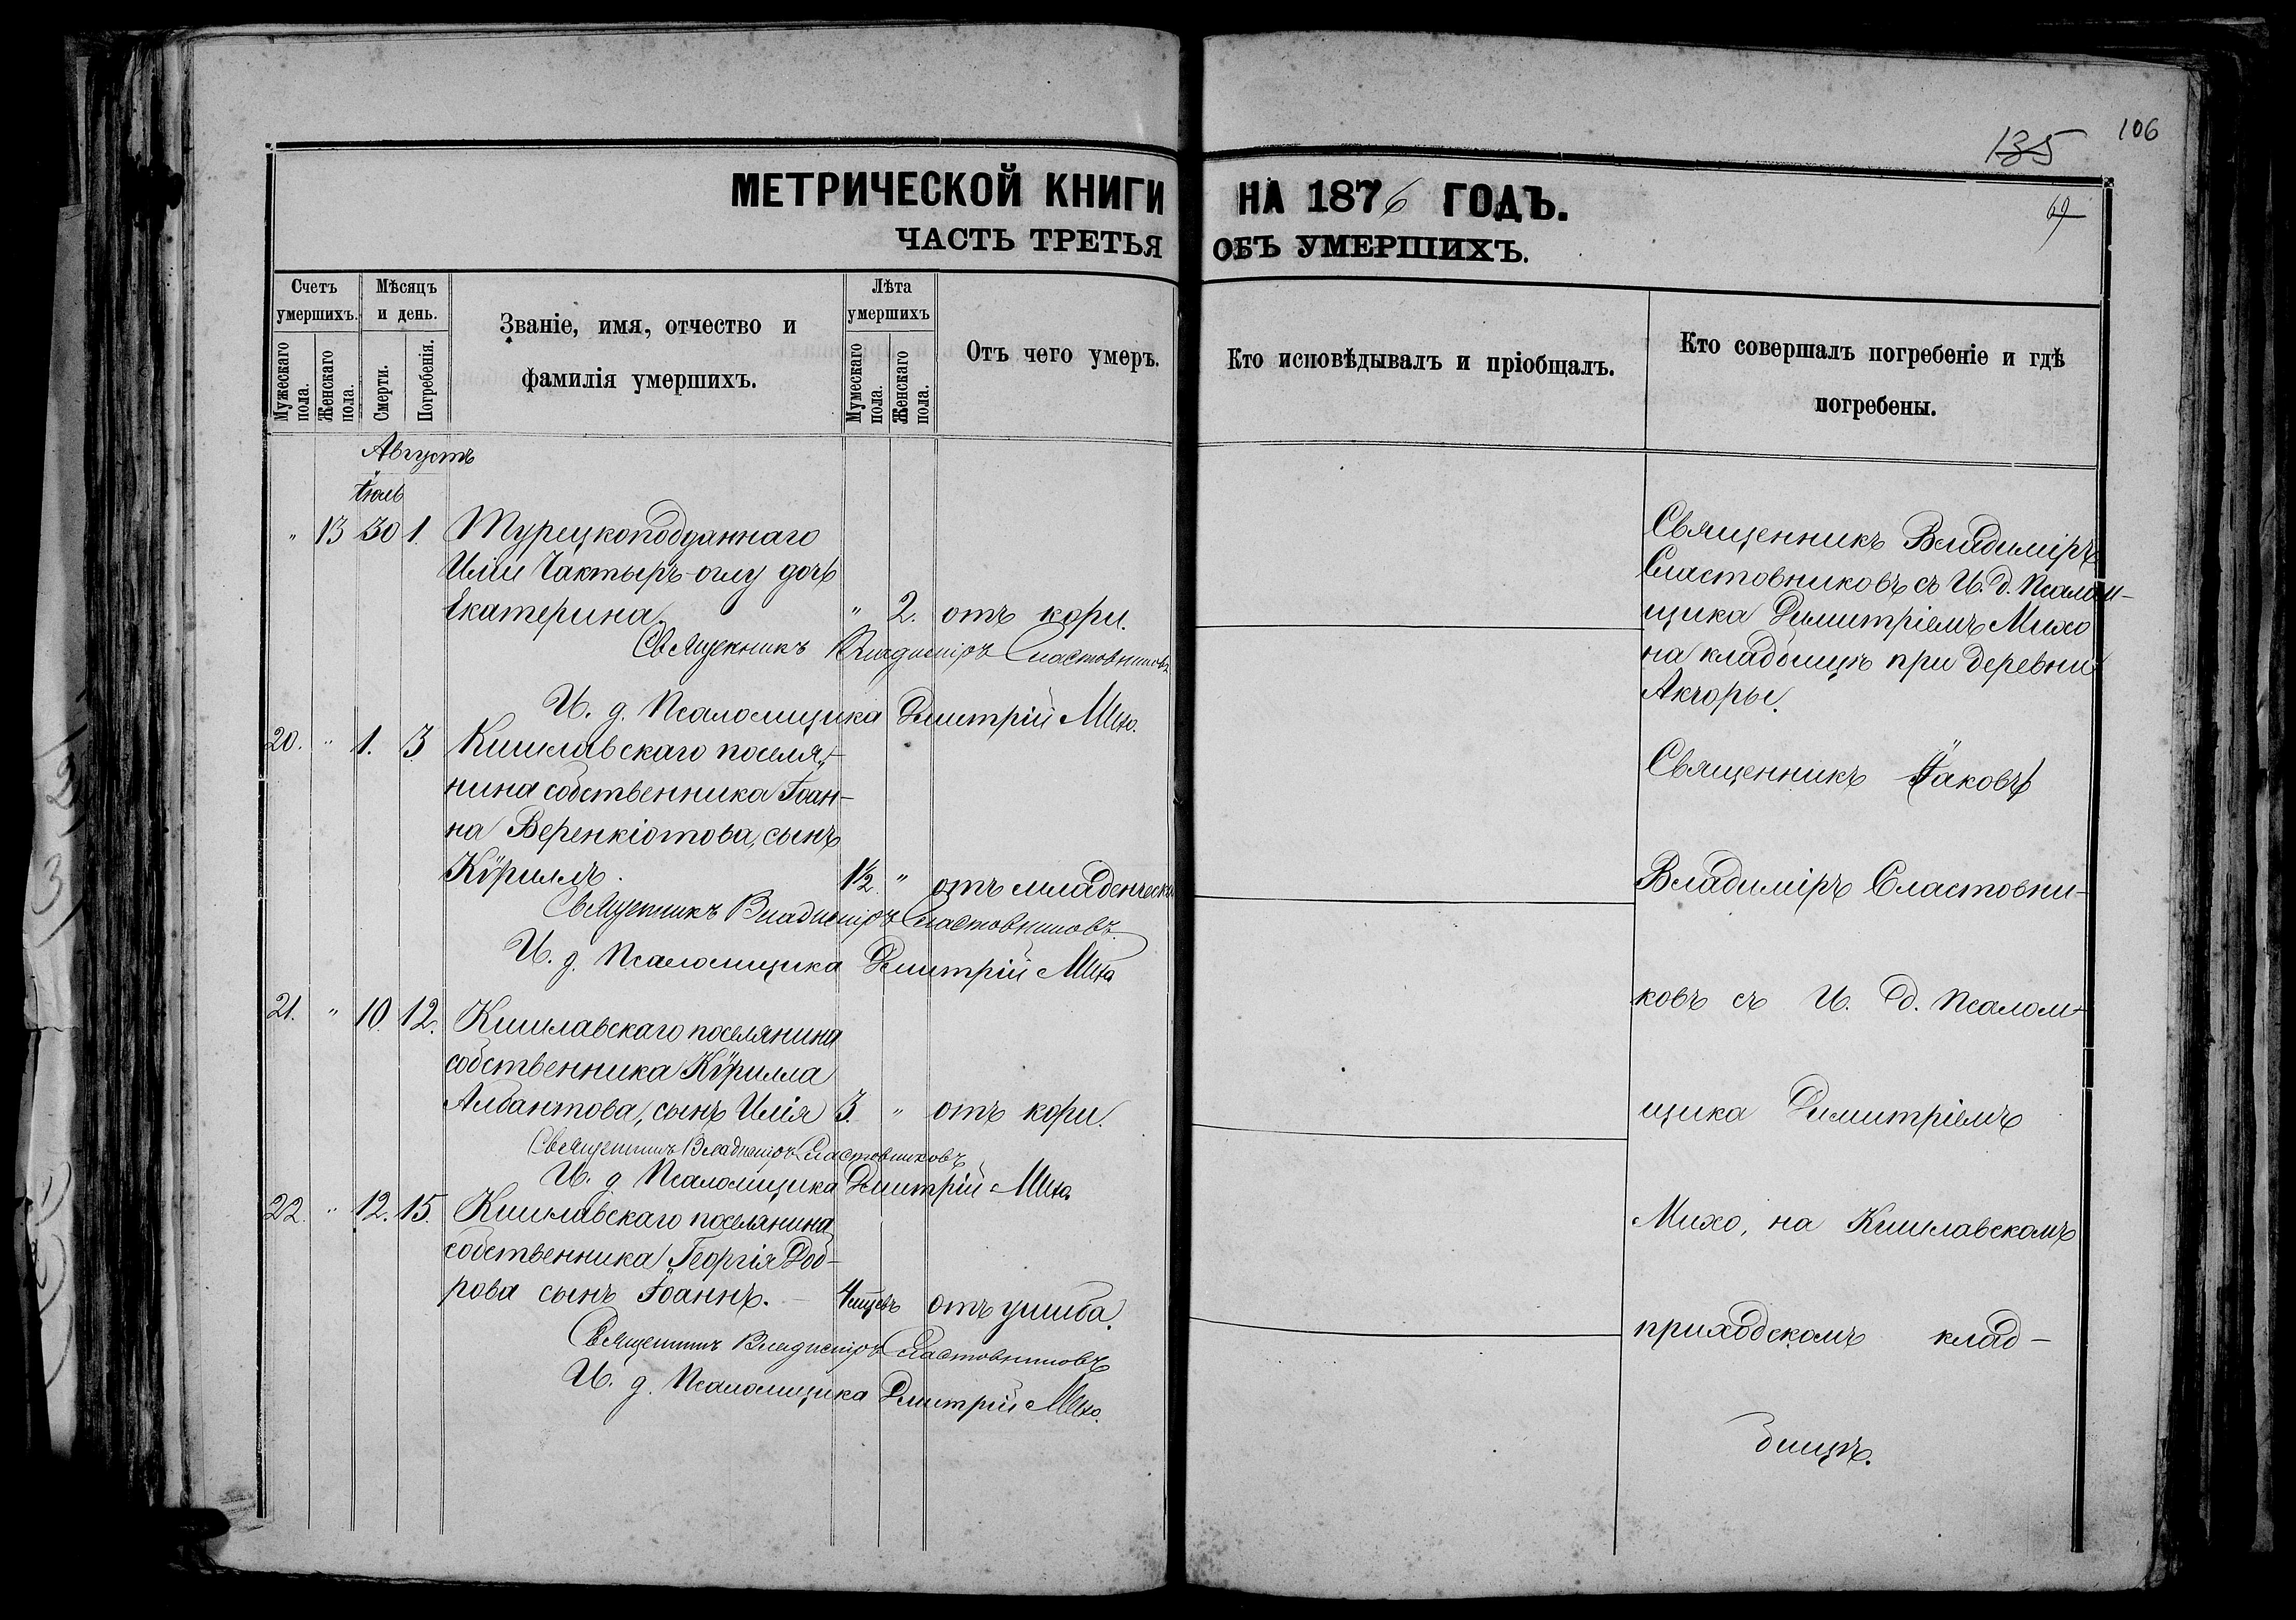 106
135
69
МЕТРИЧЕСКОЙ КНИГИ НА 1876 ГОДЪ.
ЧАСТЬ ТРЕТЬЯ ОБЪ УМЕРШИХЪ.
Счетъ умершихъ.
Мужескаго пола.
Женскаго пола.
Мѣсяцъ и день.
Смерти.
Погребенія.
Званіе, имя, отчество и
фамилія умершихъ.
Лѣта умершихъ
Мумескаго пола.
Женскаго пола.
Отъ чего умеръ.
Кто исповѣдывалъ и пріобщалъ.
Кто совершалъ погребеніе и гдѣ
погребены.
Августъ
Іюль
" 13 30 1. Турецкоподданнаго
Иліи Чактыръ-оглу дочь
Екатерина. " 2. отъ кори.
Священникъ Владиміръ Сластовниковъ
И. д. Псаломщика Димитрій Михо.
20. " 1. 3 Кишлавскаго поселя-
нина собственника Іоан-
на Веренкіотова, сынъ
Кѵриллъ. 1½ " отъ младенческ
Священникъ Владиміръ Сластовниковъ.
И. д. Псаломщика Димитрій Михо
21. " 10. 12. Кишлавскаго поселянина
собственника Кѵрилла
Албантова, сынъ Илія 3. " отъ кори.
Священникъ Владиміръ Сластовниковъ
И. д. Псаломщика Димитрій Михо.
22. " 12. 15. Кишлавскаго поселянина
собственника Георгія Доб-
рова сынъ Іоаннъ. 4 мѣсць отъ ушиба.
Священникъ Владиміръ Сластовниковъ
И. д. Псаломщика Димитрій Михо.
Священникъ Владиміръ
Сластовниковъ съ И. д. Псалом-
щика Димитріемъ Михо
на кладбищѣ при деревни
Акчоры.
Священникъ Іаковъ
Владиміръ Сластовни-
ковъ съ И. д. Псалом-
щика Димитріемъ
Михо, на Кишлавскомъ
приходскомъ клад-
бищѣ.